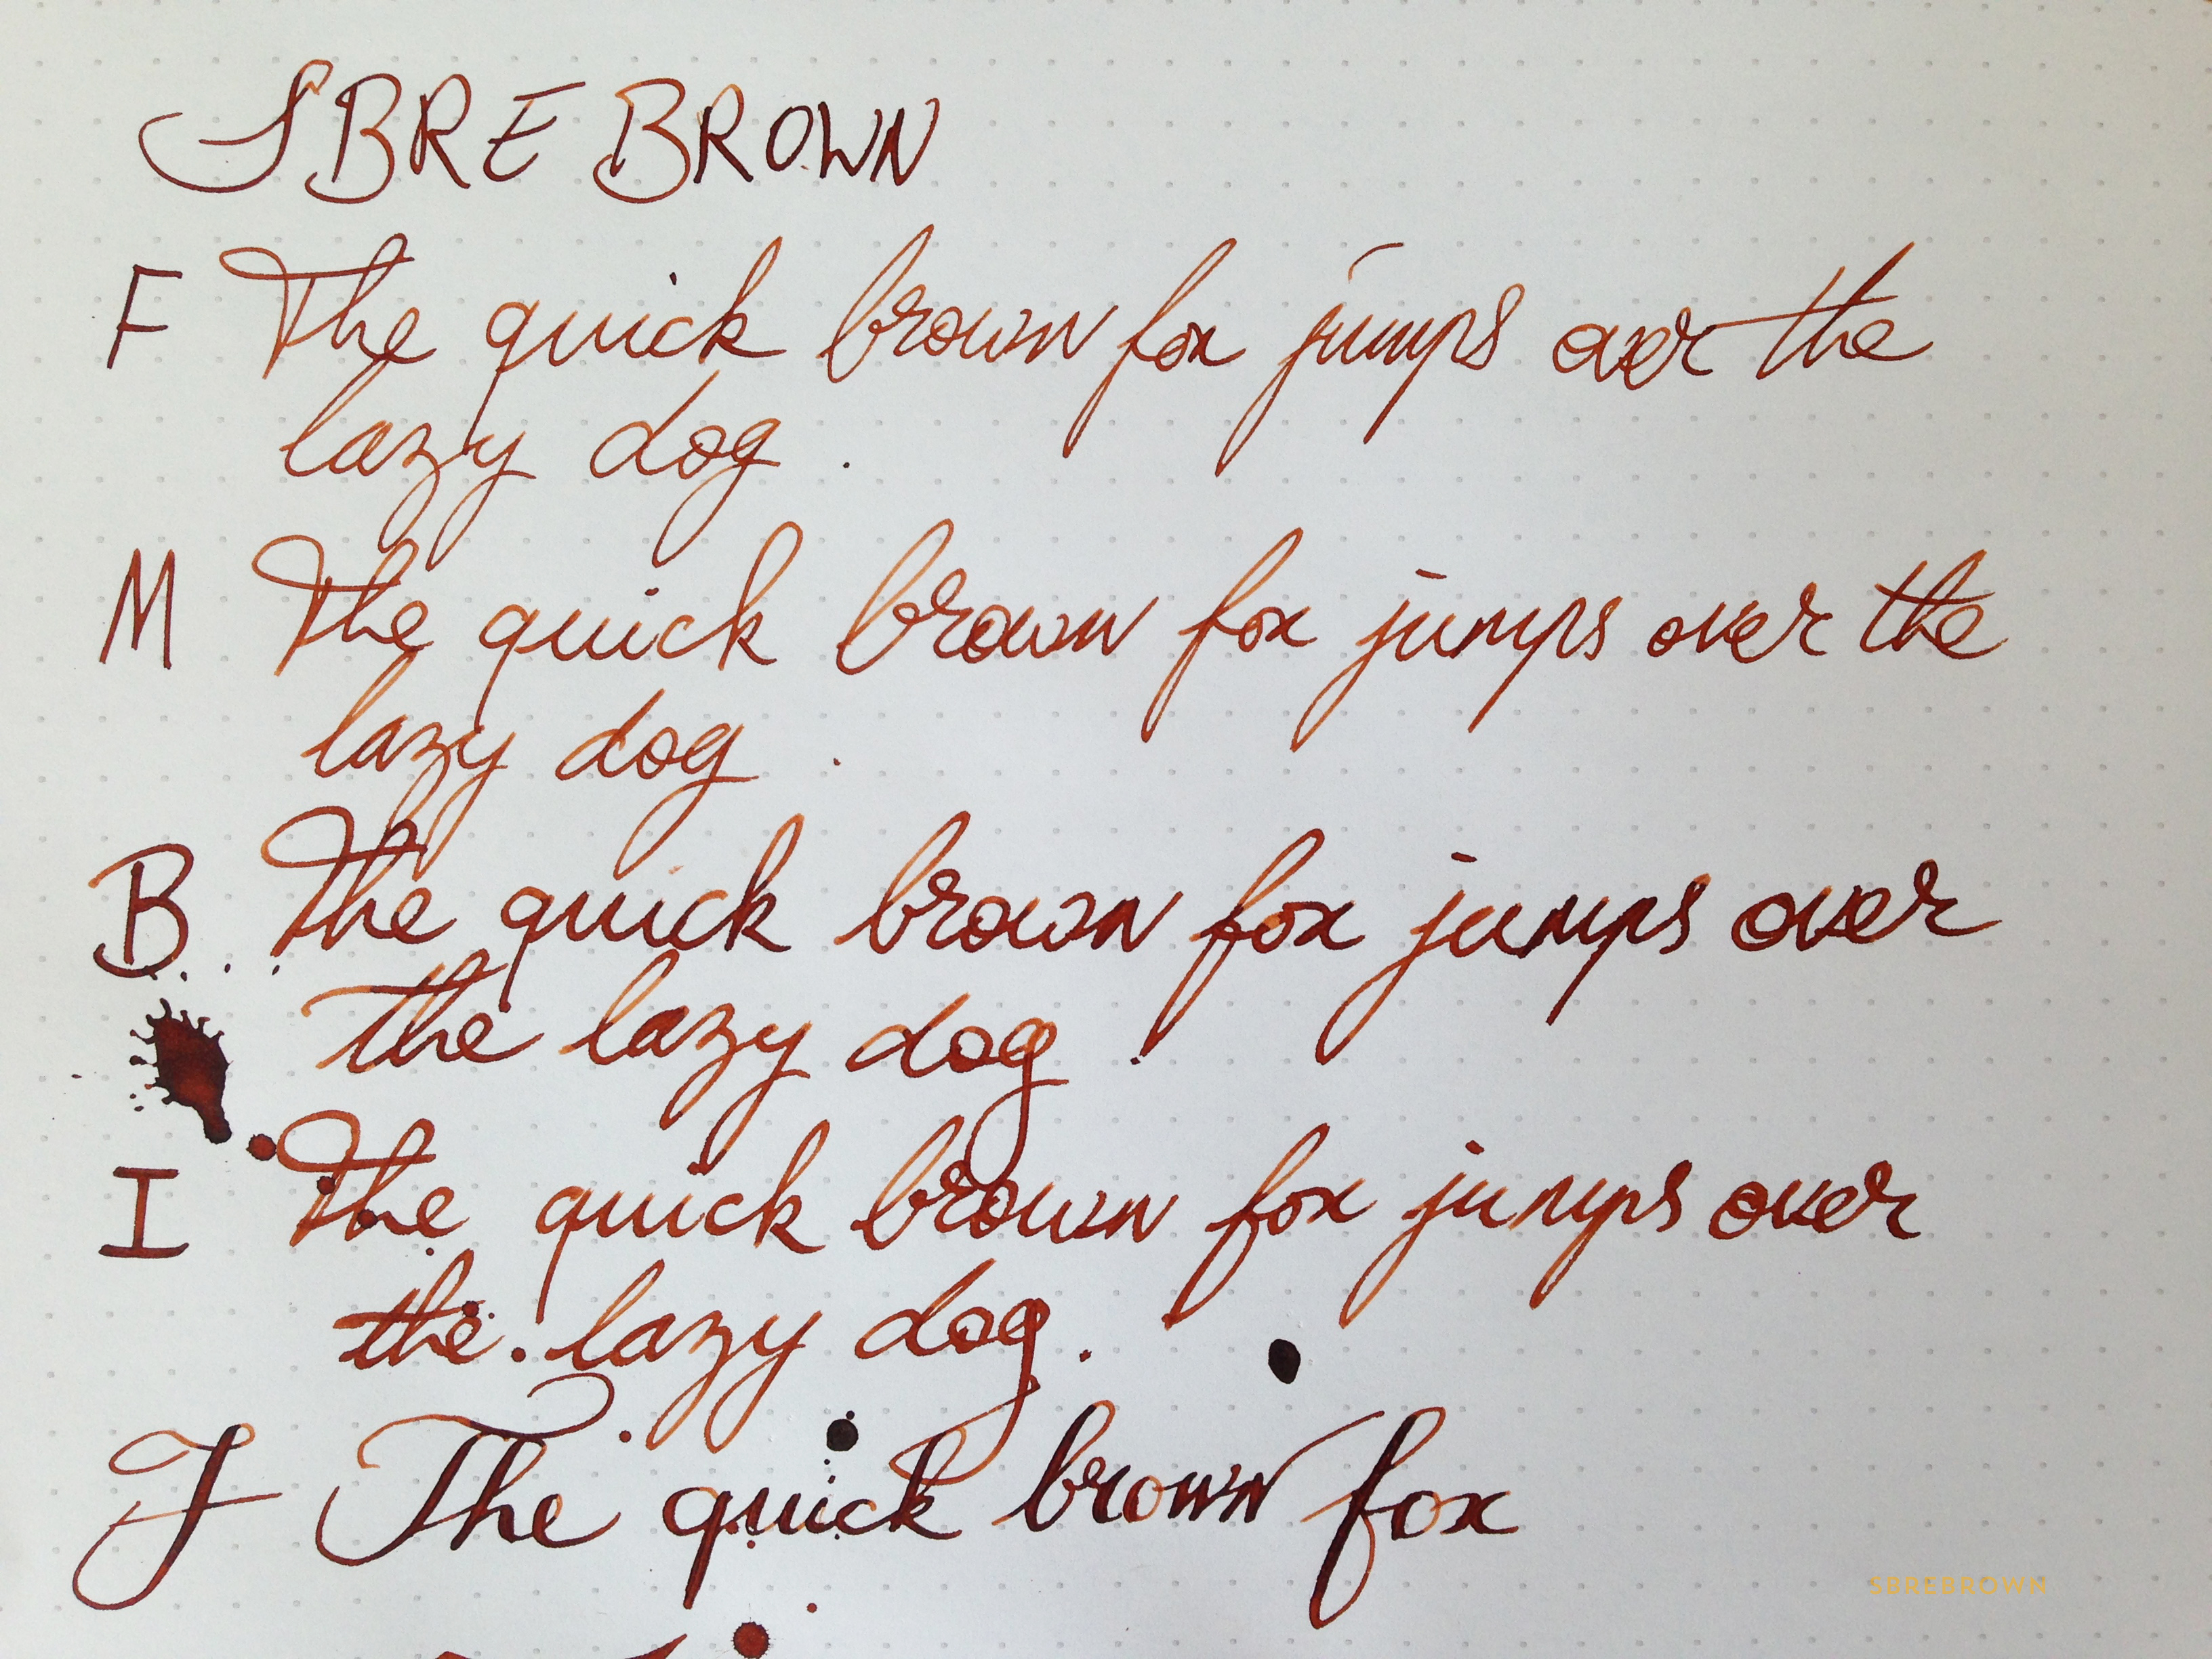 SBRE BROWN
F The quick brown fox jumps over the
lazy dog .
M The quick brown fox jumps over the
lazy dog .
B The quick brown fox jumps over
the lazy dog .
I The quick brown fox jumps over
the lazy dog .
F The quick brown fox
SBREBROWN